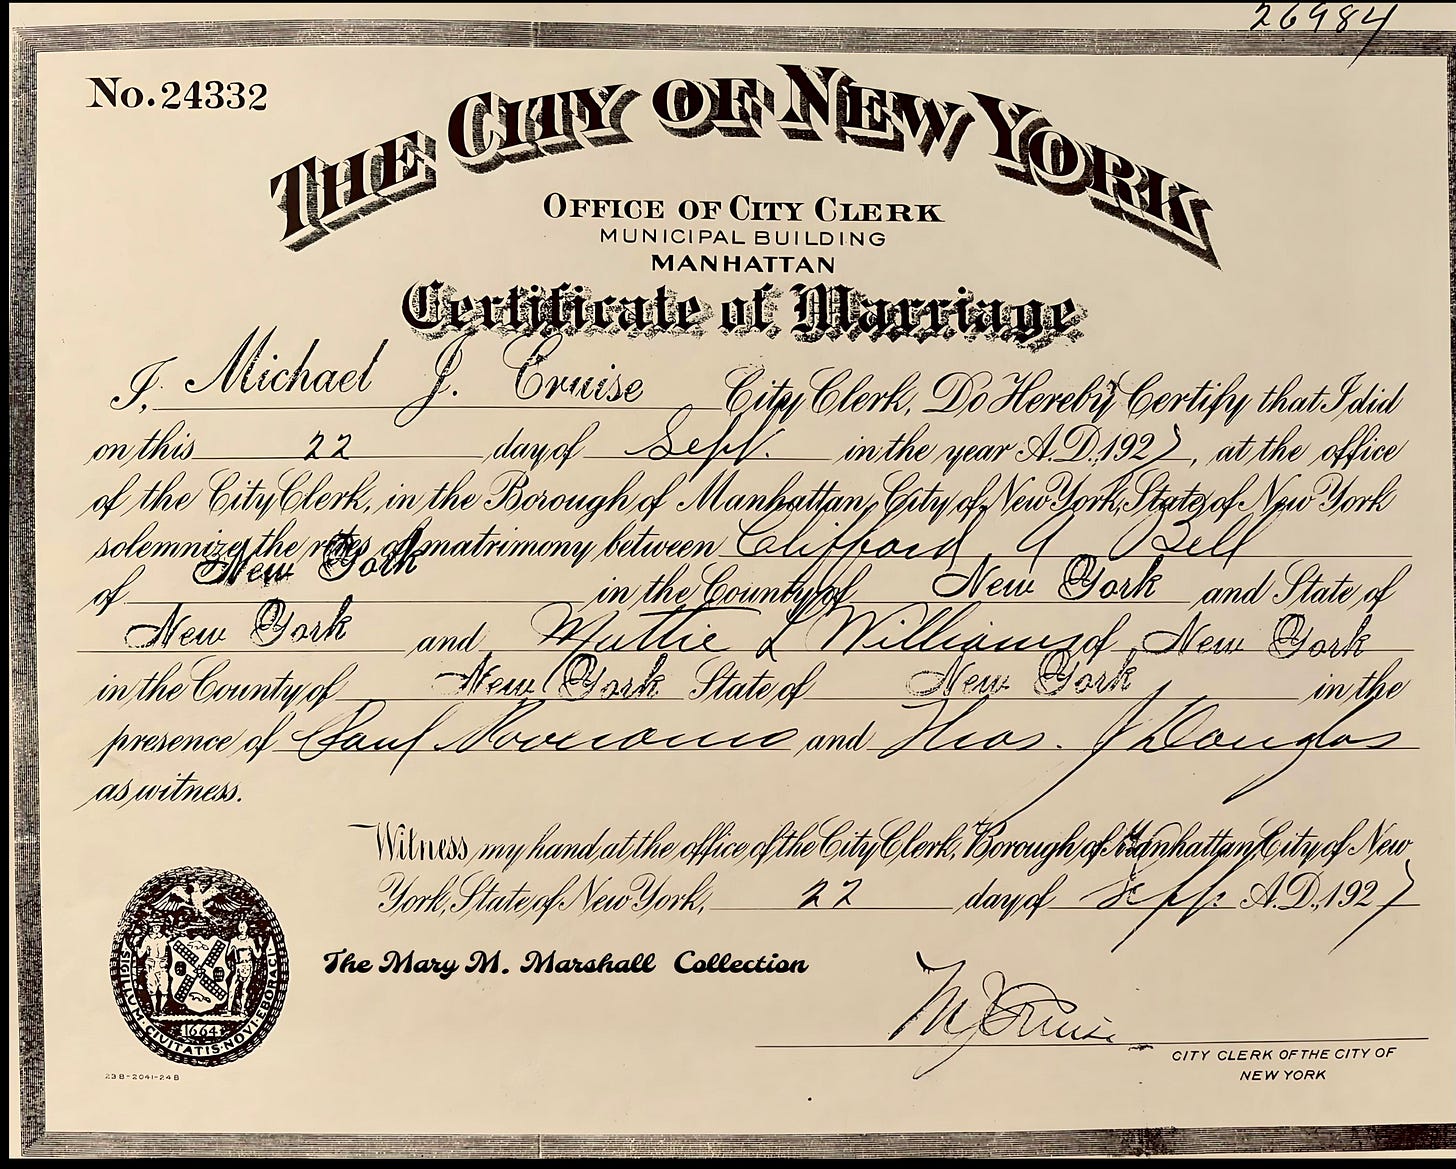 26984
No. 24332
THE CITY OF NEW YORK
OFFICE OF CITY CLERK
MUNICIPAL BUILDING
MANHATTAN
Certificate of Marriage
I, Michael J. Cruise City Clerk, Do Hereby Certify that I did
on this 22 day of Sept. in the year A.D. 1927, at the office
of the City Clerk, in the Borough of Manhattan, City of New York, State of New York
solemnize the rites of matrimony between Clifford A Bell
of New York in the County of New York and State of
New York and Mattie L Williams of New York
in the County of New York State of New York in the
presence of Paul and Thos. J Douglas
as witness.
Witness my hand at the office of the City Clerk, Borough of Manhattan, City of New
York, State of New York, 22 day of Sept. A.D., 1927
The Mary M. Marshall Collection
M J Cruise
CITY CLERK OF THE CITY OF
NEW YORK
SIGILLUM · CIVITATIS · NOVI · EBORACI
1664
23B-2041-24B